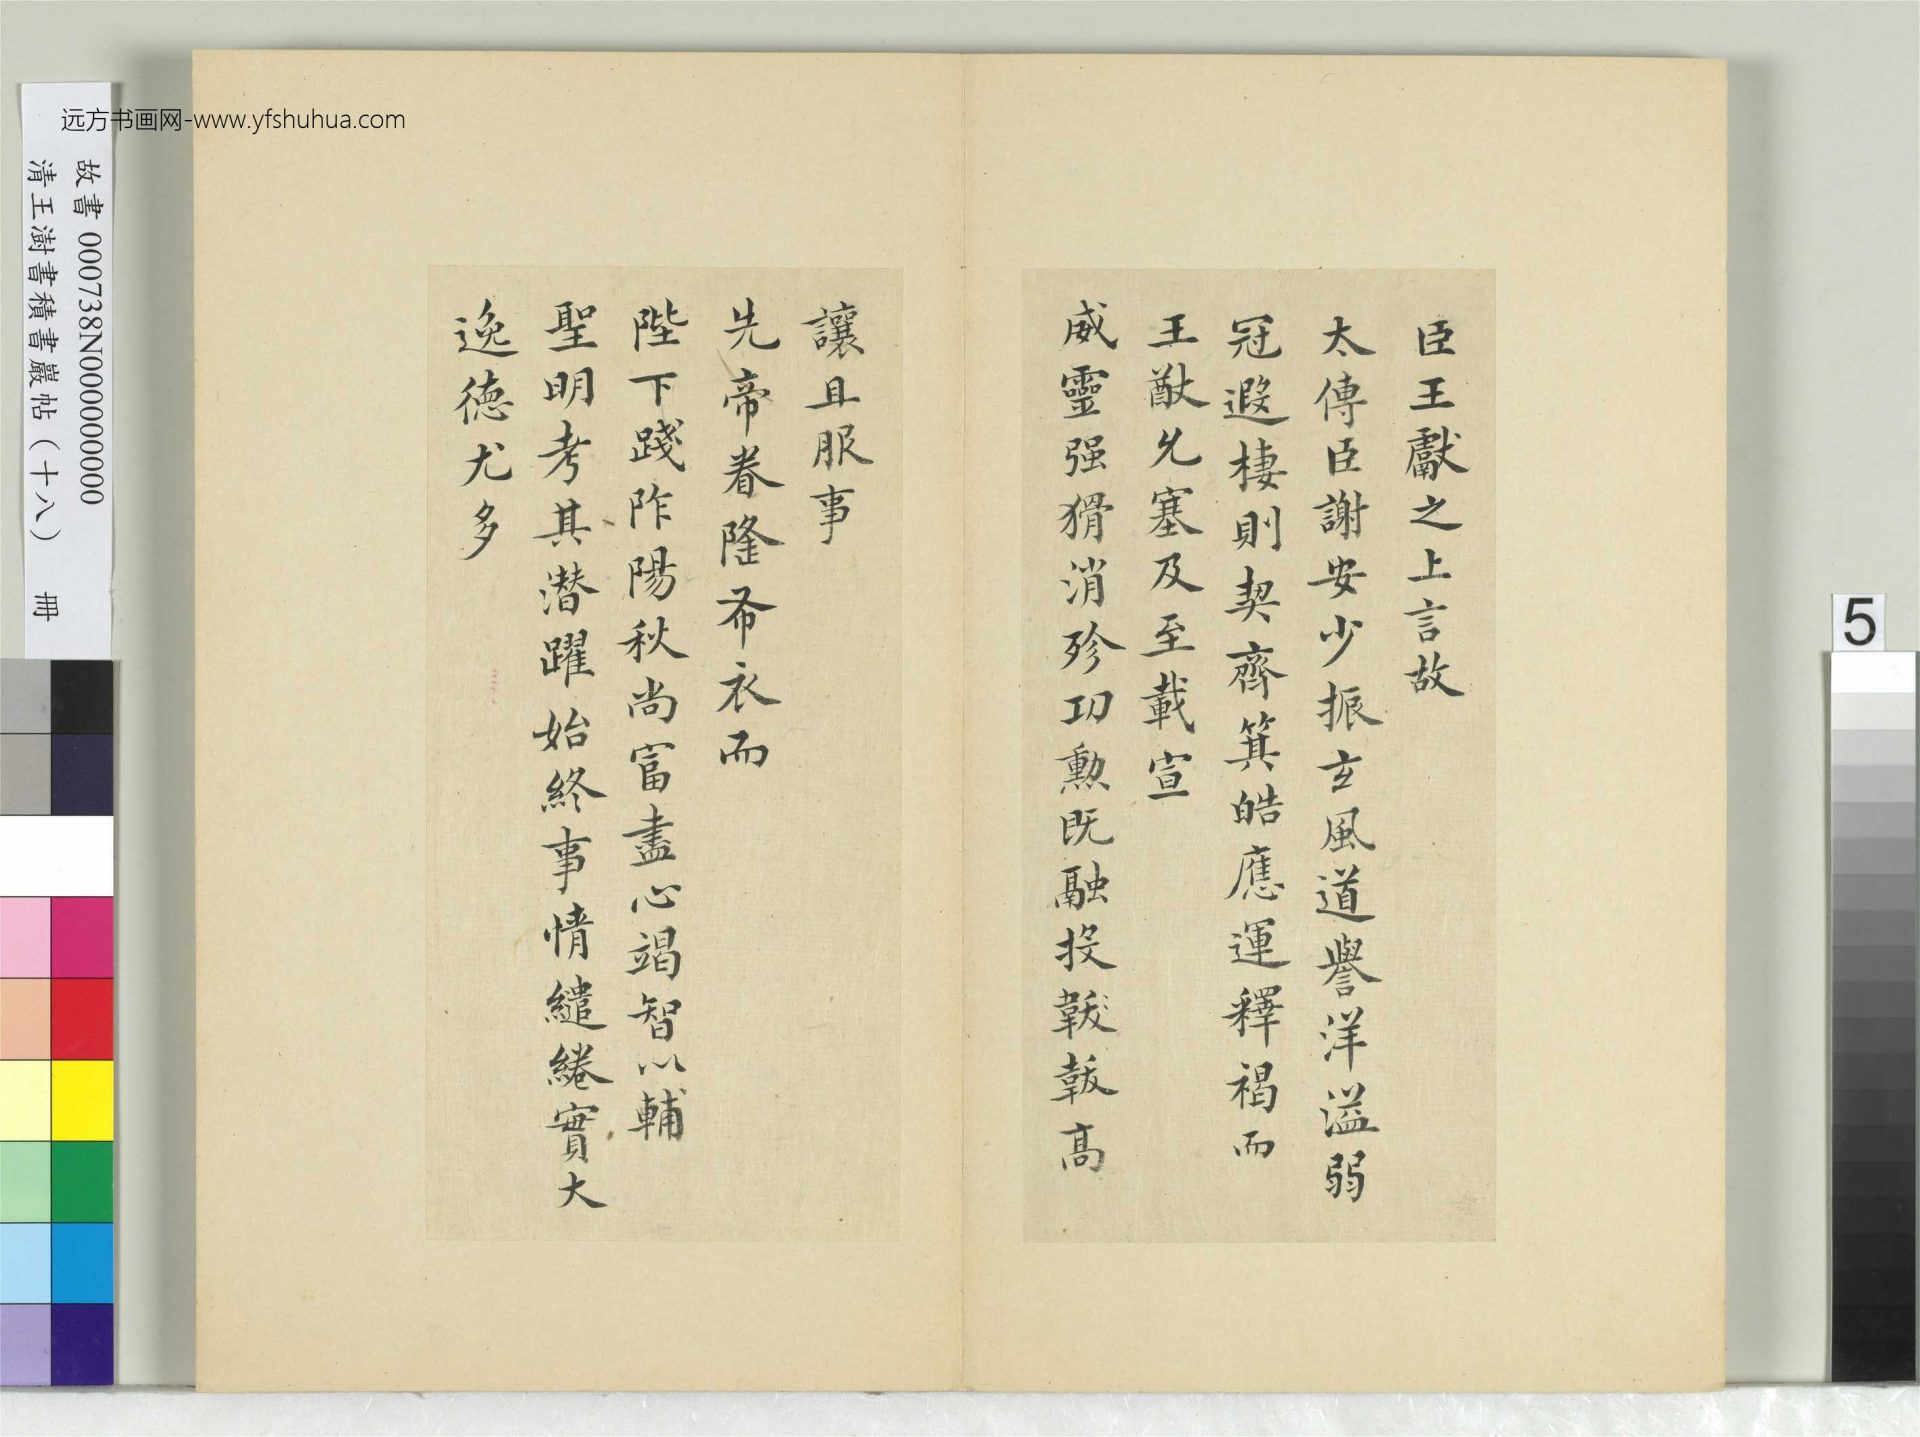 臣王獻之上言故
太傅臣謝安少振玄風道譽洋溢弱
冠遐棲則契齊箕皓應運釋褐而
王猷允塞及至載宣
威靈强猾消殄功勲既融投韍高
讓且服事
先帝眷隆布衣而
陛下踐阼陽秋尚富盡心竭智以輔
聖明考其潛躍始終事情繾綣實大
逸德尤多
远方书画网-www.yfshuhua.com
故書 000738N000000000
清王澍書積書巖帖(十八) 冊
5